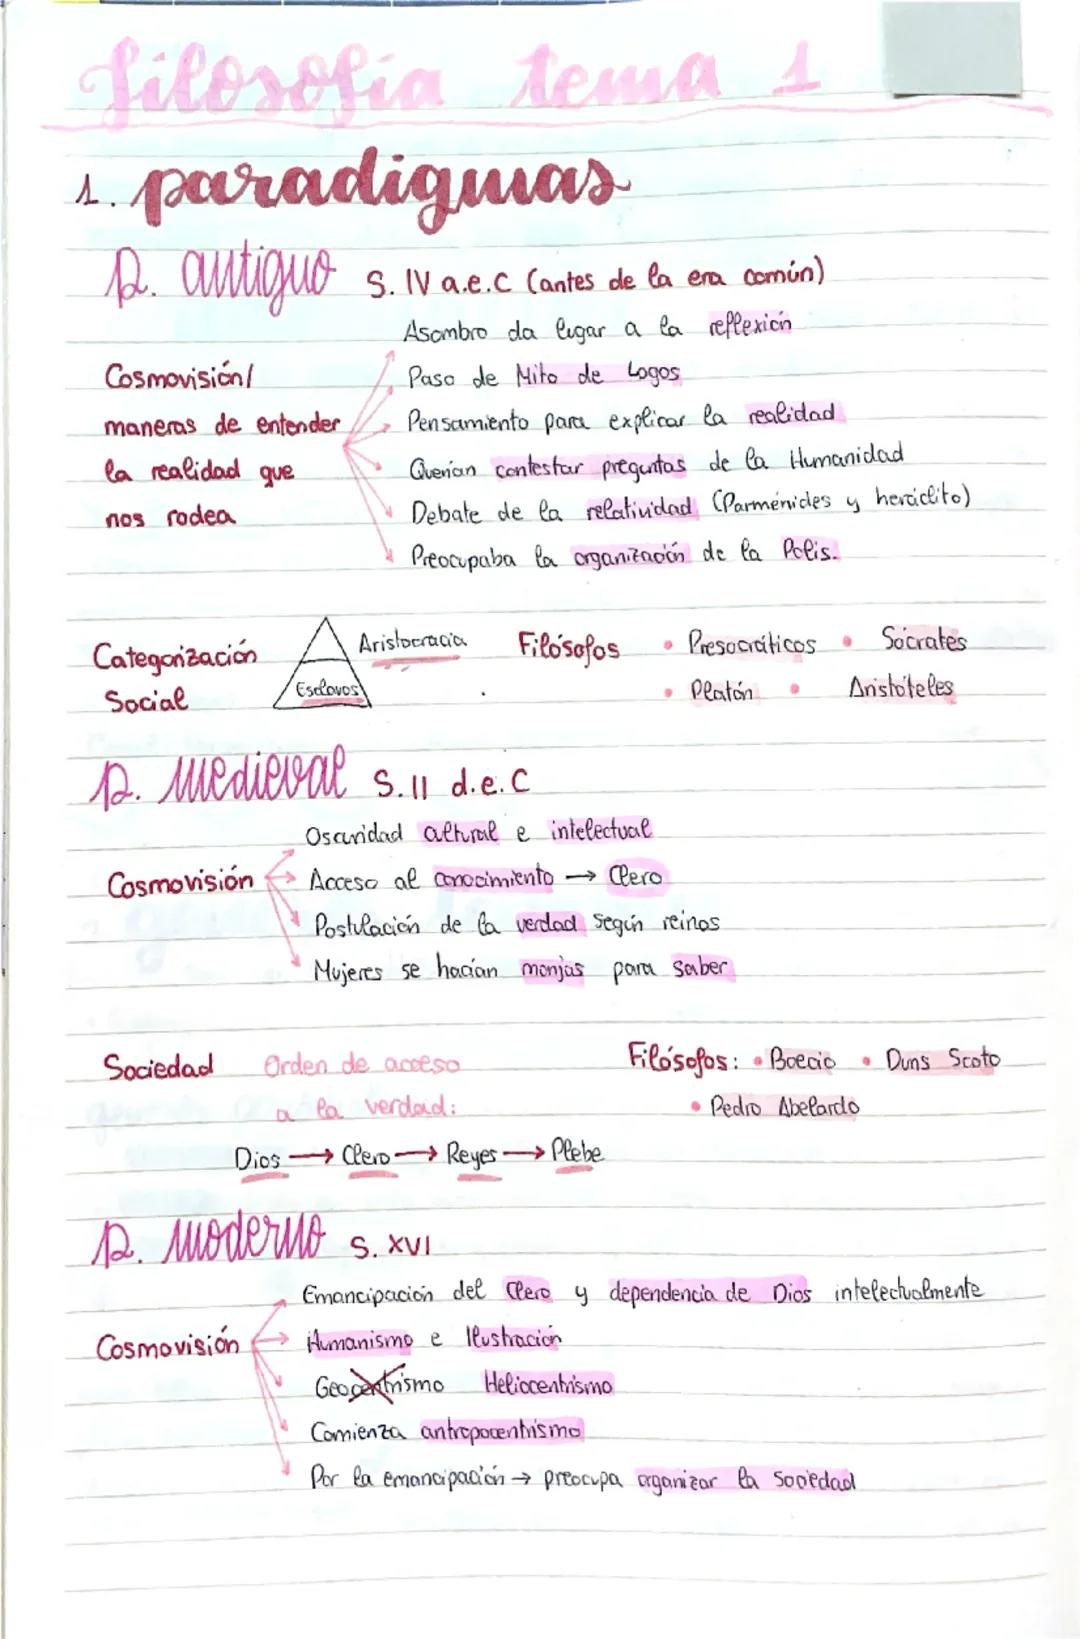 filosofía tema 1
1. paradigmas
P. antiguo S. IV a.e.C (antes de la era común)
Cosmovisión/
maneras de entender
la realidad que
nos rodea
Asombro da lugar a la reflexión
Paso de Mito de Logos
Pensamiento para explicar la realidad
Querían contestar preguntas de la Humanidad
Debate de la relatividad (Parménides y heráclito)
Preocupaba la organización de la Polis.
Categorización
Social
Aristocracia
Esclavos
Filósofos • Presocráticos • Sócrates
• Platón • Aristóteles
P. Medieval S. II d.e.C
Cosmovisión
Oscuridad cultural e intelectual
Acceso al conocimiento → Clero
Postulación de la verdad según reinos
Mujeres se hacían monjas para saber
Sociedad Orden de acceso
a la verdad:
Dios → Clero → Reyes → Plebe
Filósofos: • Boecio • Duns Scoto
• Pedro Abelardo
P. Moderno S. XVI
Cosmovisión
Emancipación del Clero y dependencia de Dios intelectualmente
Humanismo e Ilustración
Geocentrismo Heliocentrismo
Comienza antropocentrismo
Por la emancipación → preocupa organizar la sociedad